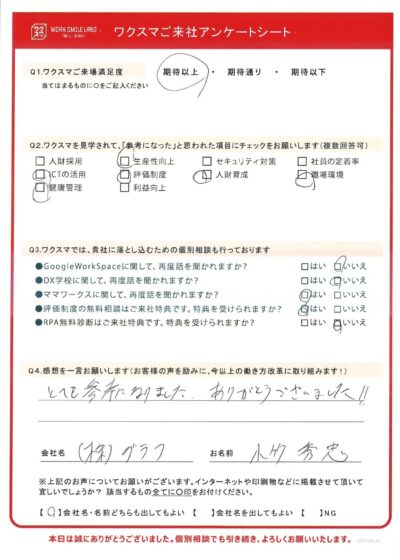 WORK SMILE LABO
ワクスマご来社アンケートシート
Q1.ワクスマご来場満足度
期待以上 ・ 期待通り ・ 期待以下
当てはまるものに〇をご記入ください
Q2.ワクスマを見学されて、「参考になった」と思われた項目にチェックをお願いします(複数回答可)
□人財採用 □生産性向上 □セキュリティ対策 □社員の定着率
□ICTの活用 □評価制度 □人財育成 □職場環境
□健康管理 □利益向上
Q3.ワクスマでは、貴社に落とし込むための個別相談も行っております
●GoogleWorkSpaceに関して、再度話を聞かれますか? □はい □いいえ
●DX学校に関して、再度話を聞かれますか? □はい □いいえ
●ママワークスに関して、再度話を聞かれますか? □はい □いいえ
●評価制度の無料相談はご来社特典です。特典を受けられますか? □はい □いいえ
●RPA無料診断はご来社特典です。特典を受けられますか? □はい □いいえ
Q4.感想を一言お願いします(お客様の声を励みに、今以上の働き方改革に取り組みます!)
とても参考になりました。ありがとうございました!!
会社名 (株)グラフ お名前 小竹 秀忠
※上記のお声についてお願いがございます。インターネットや印刷物などに掲載させて頂いて
宜しいでしょうか? 該当するもの全てに〇印をお付けください。
【〇】会社名・名前どちらも出してもよい 【 】会社名を出してもよい 【 】NG
本日は誠にありがとうございました。個別相談でも引き続き、よろしくお願いいたします。